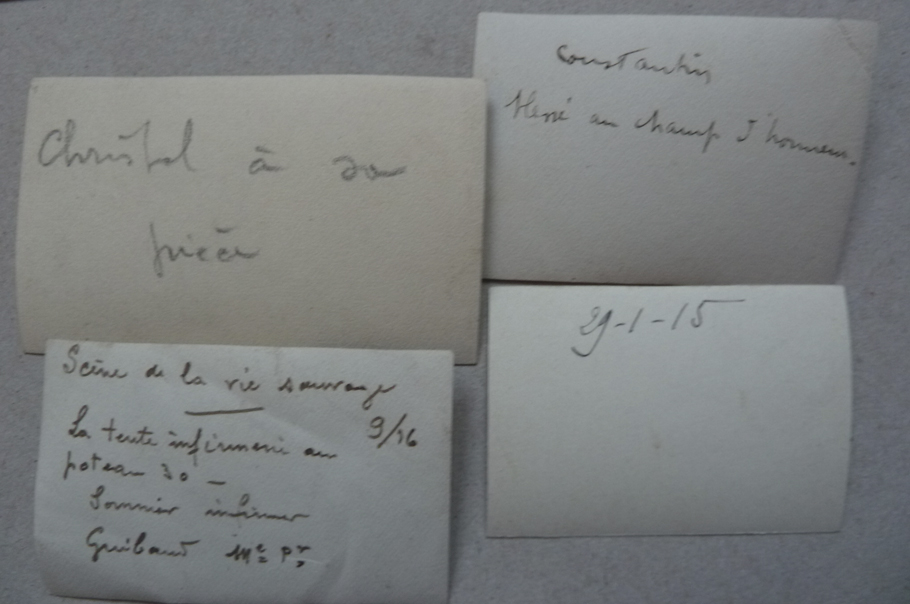 Constantin
blessé au champ d'honneur.
Christol à sa
pièce
29-1-15
Scène de la vie sauvage
9/16
La tente infirmerie au
poteau 30 –
Sommier infirmier
Guibaud Mᵉ Pʳ